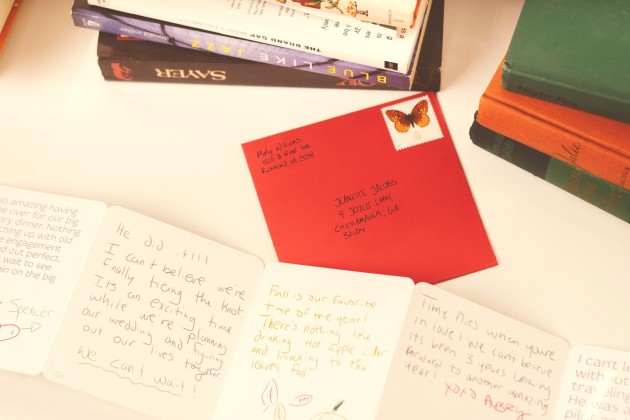 THE BRAND GAP
BLUE LIKE JAZZ
SAYER
Molly Williams
Richmond, VA
JEANETTE JACOBS
9 JOYCE LANE
so amazing having
e over for our big
ory dinner. Nothing
ching up with old
e engagement
d out perfect.
wait to see
in on the big
Spencer
He did it!!!
I can't believe we're
finally tieing the knot
It's an exciting time
while we're planning
our wedding and figuring
out our lives together.
We Can't wait!
Fall is our favorite
time of the year!
There's nothing like
drinking hot apple cider
and listening to the
leaves fall
Time flies when you're
in love! We can't believe
it's been 3 years. Looking
forward to another amazing
year!
XOXO
I can't le
withou
travelin
He was